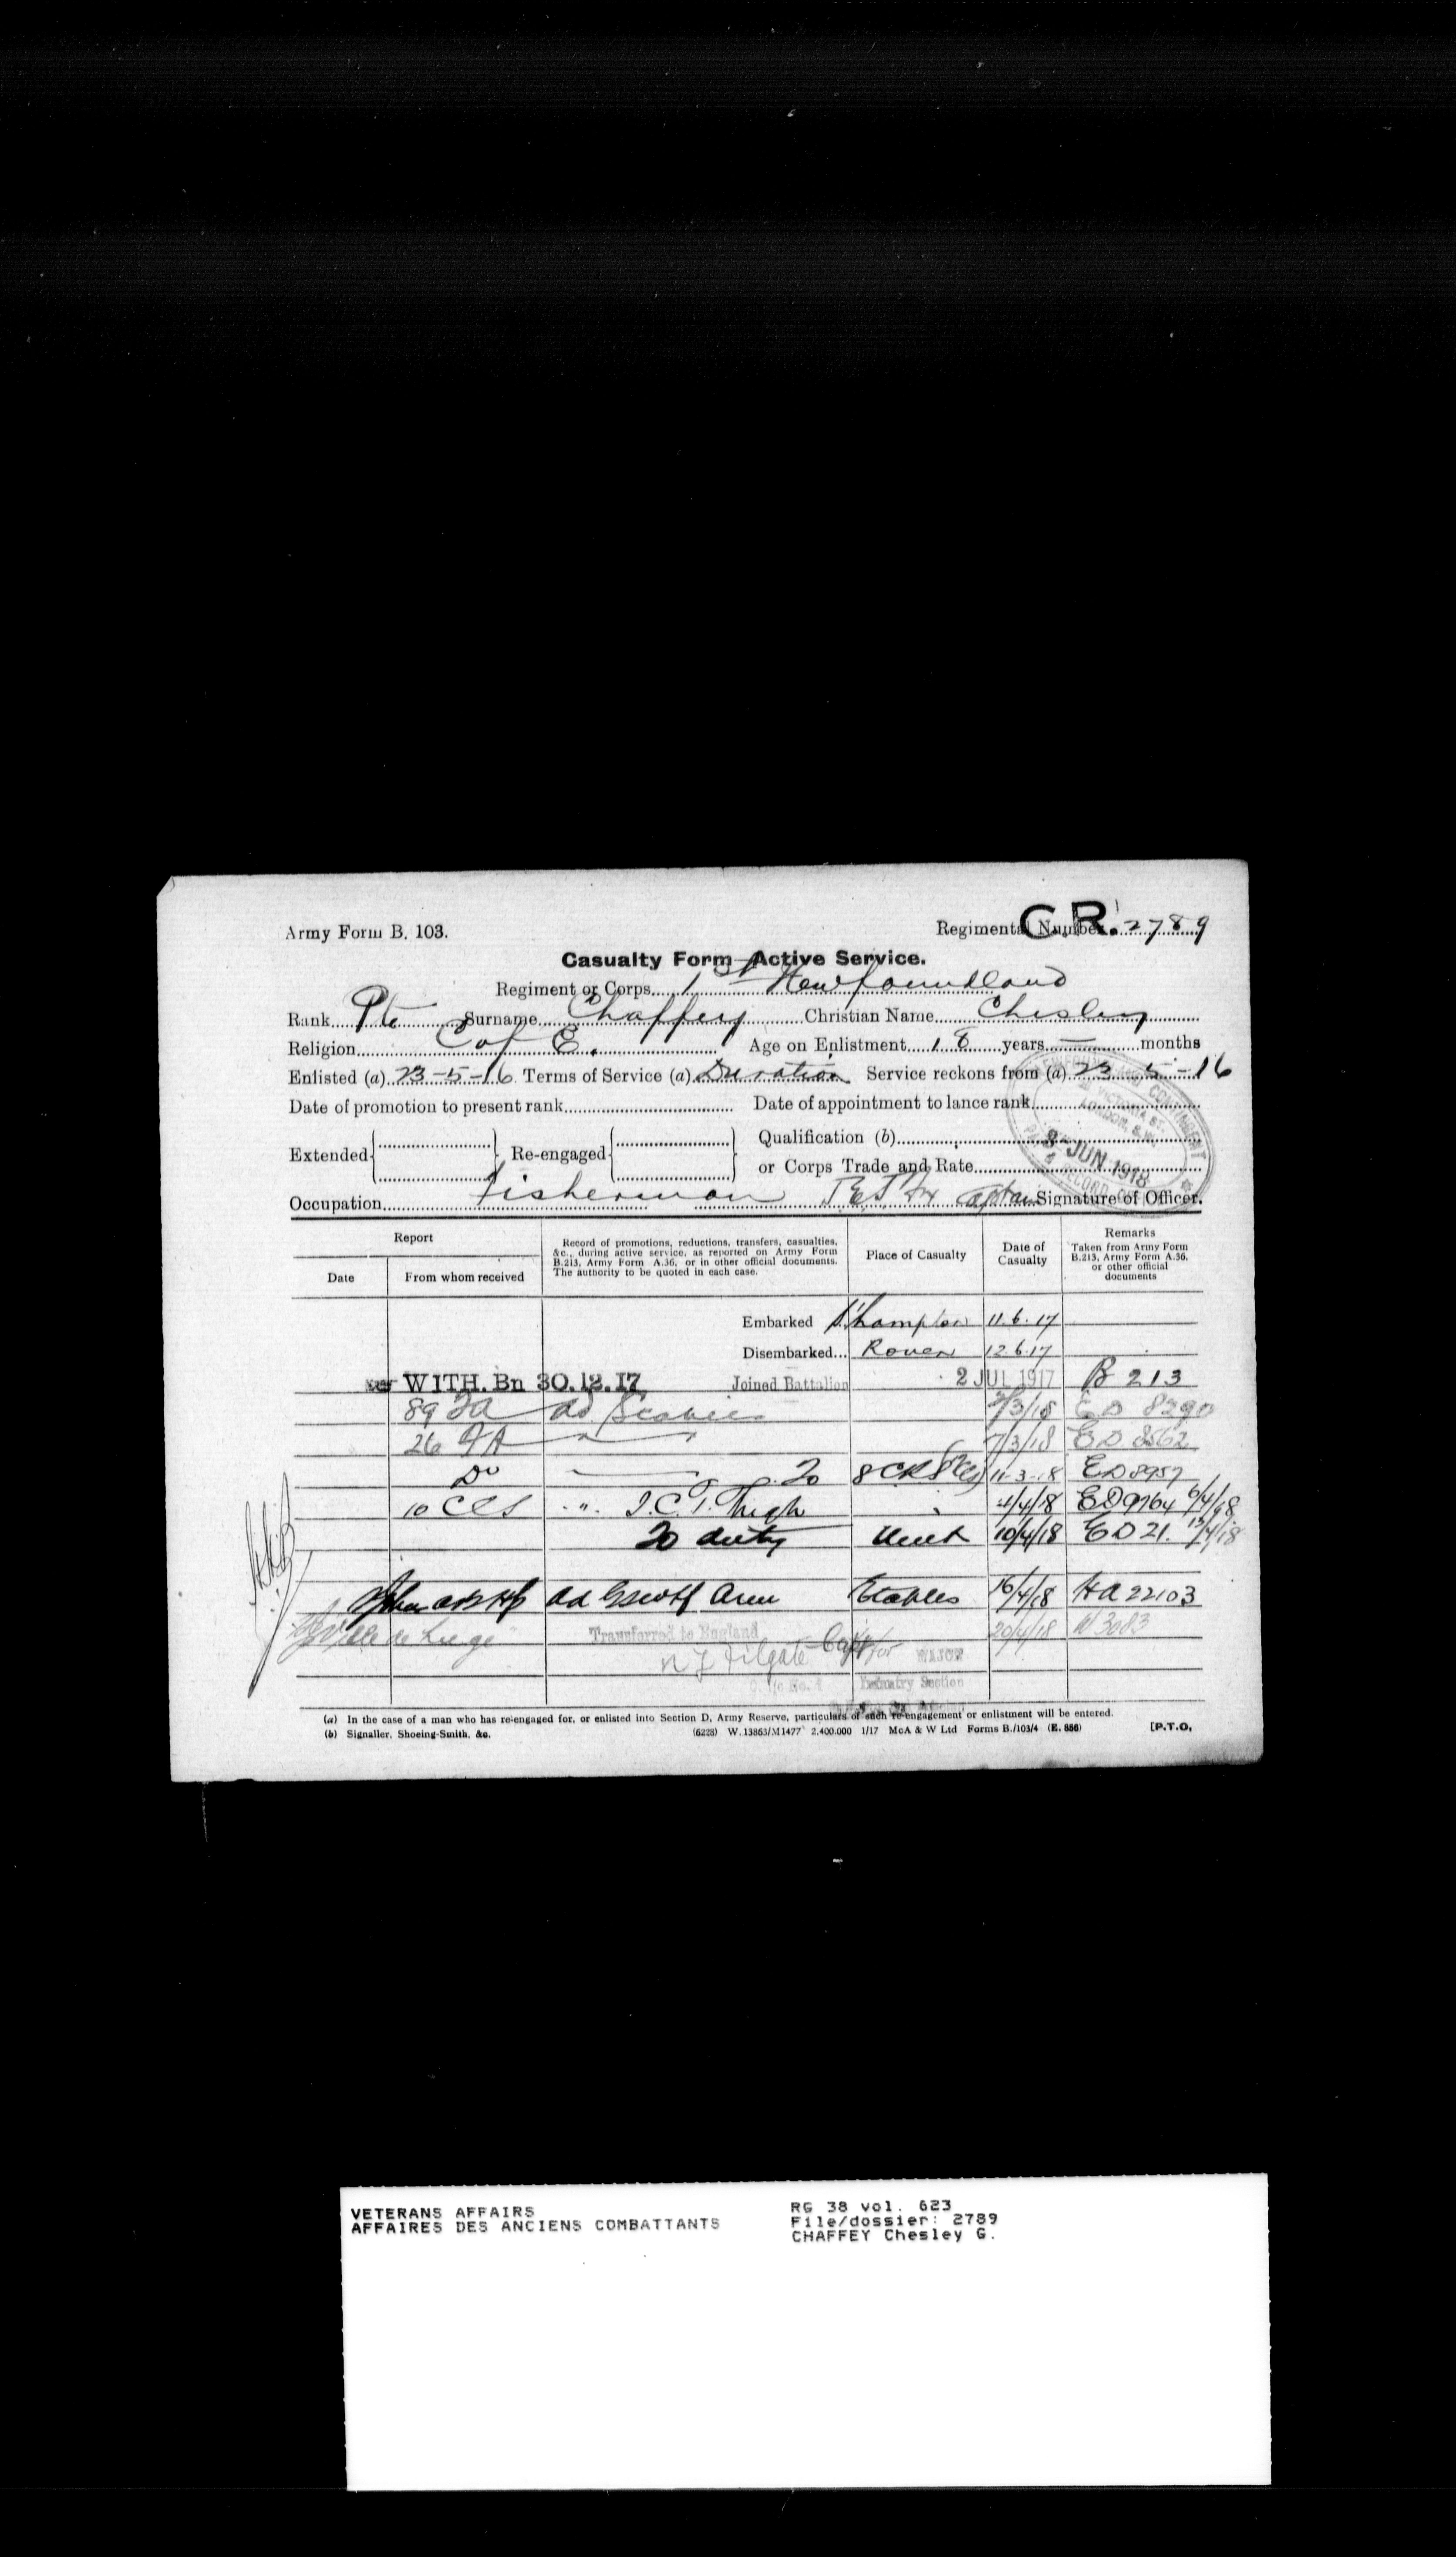 Army Form B. 103.
Regimental Number 2789
C.R.
Casualty Form—Active Service.
Regiment or Corps 1st Newfoundland
Rank Pte Surname Chaffey Christian Name Chesley
Religion C of E. Age on Enlistment 18 years — months
Enlisted (a) 23-5-16 Terms of Service (a) Duration Service reckons from (a) 23-5-16
Date of promotion to present rank Date of appointment to lance rank
Extended Re-engaged Qualification (b)
or Corps Trade and Rate
8-JUN 1918
Occupation Fisherman Captain Signature of Officer.
Report
Date
From whom received
Record of promotions, reductions, transfers, casualties, &c., during active service, as reported on Army Form B.213, Army Form A.36, or in other official documents. The authority to be quoted in each case.
Place of Casualty
Date of Casualty
Remarks
Taken from Army Form B.213, Army Form A.36, or other official documents
Embarked S'hampton 11.6.17
Disembarked... Rouen 12.6.17
WITH. Bn 30.12.17 Joined Battalion 2 JUL 1917 B 213
89 FA ad Scabies 2/3/18 ED 8290
26 FA 7/3/18 ED 8562
Do To 11-3-18 ED 8957
10 CCS " I.C.T. Thigh 4/4/18 ED 9764 6/4/18
To duty Unit 10/4/18 ED 21. 12/4/18
ad Etaples 16/4/18 HA 22103
Ville de Liege Transferred to England 20/4/18 W 3083
Filgate Capt for MAJOR
Infantry Section
(a) In the case of a man who has re-engaged for, or enlisted into Section D, Army Reserve, particulars of such re-engagement or enlistment will be entered.
(b) Signaller, Shoeing-Smith, &c. (6228) W. 13863/M1477 2,400,000 1/17 McA & W Ltd Forms B./103/4 (E. 886) [P.T.O.
VETERANS AFFAIRS
AFFAIRES DES ANCIENS COMBATTANTS
RG 38 vol. 623
File/dossier: 2789
CHAFFEY Chesley G.